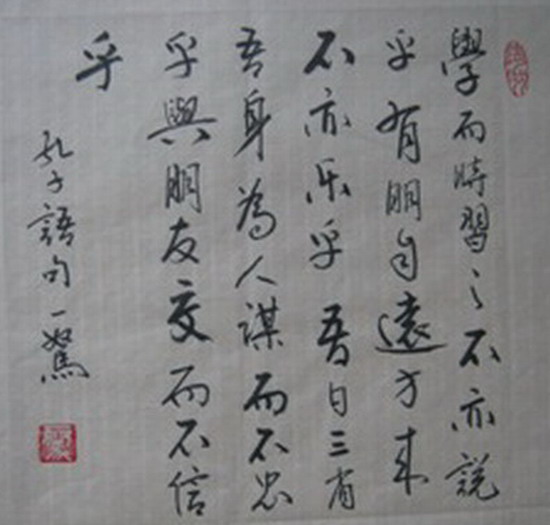 學而時習之不亦説
乎有朋自遠方来
不亦乐乎吾日三省
吾身為人谋而不忠
乎與朋友交而不信
乎
孔子語句一駑